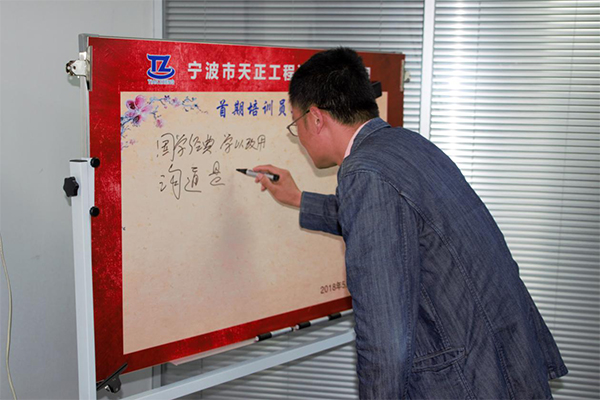 TZ
宁波市天正工程
首期培训员
国学经典 学以致用
沟通是
2018年5